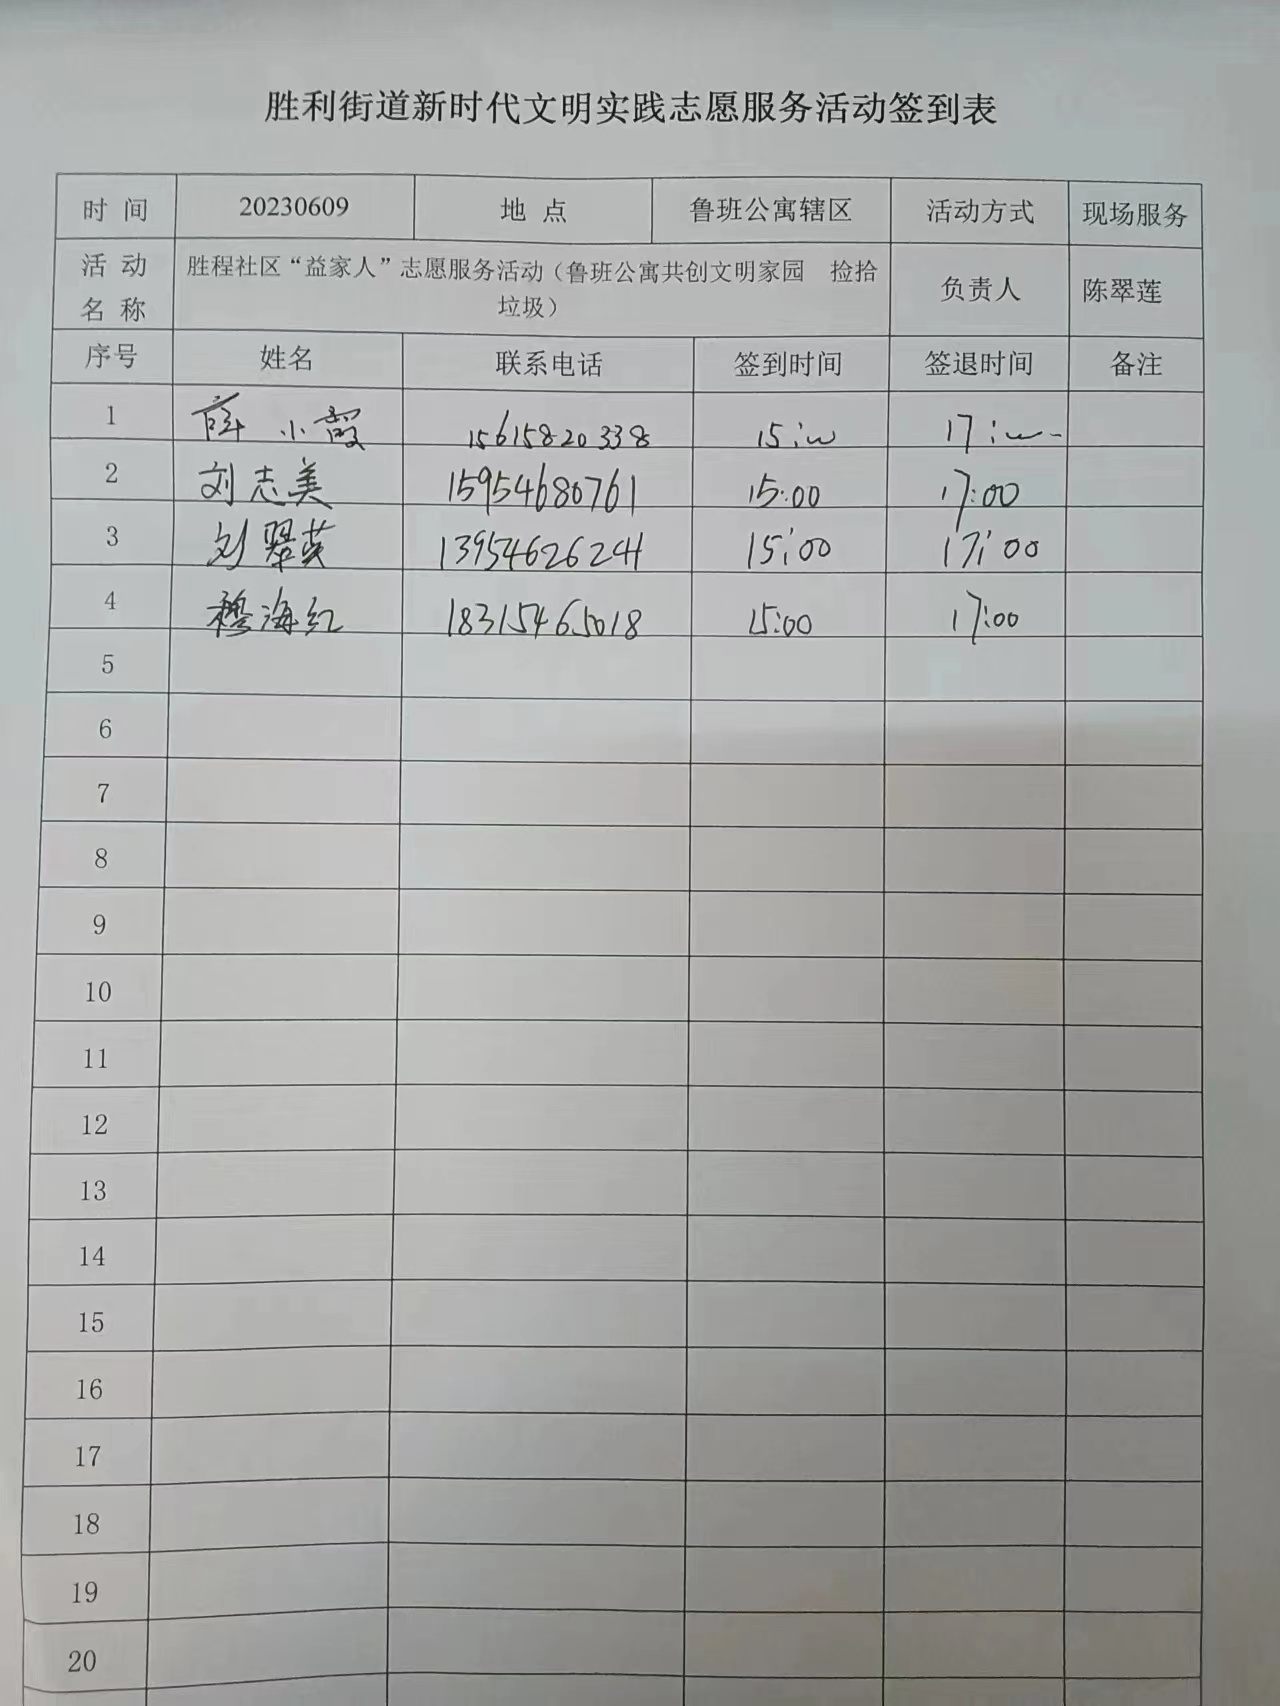 胜利街道新时代文明实践志愿服务活动签到表
时 间 20230609 地 点 鲁班公寓辖区 活动方式 现场服务
活 动 名 称 胜程社区“益家人”志愿服务活动（鲁班公寓共创文明家园 捡拾
垃圾） 负责人 陈翠莲
序号 姓名 联系电话 签到时间 签退时间 备注
1 薛小霞 15615820338 15:00 17:00
2 刘志美 15954680761 15:00 17:00
3 刘翠英 13954626241 15:00 17:00
4 穆海红 18315465018 15:00 17:00
5
6
7
8
9
10
11
12
13
14
15
16
17
18
19
20